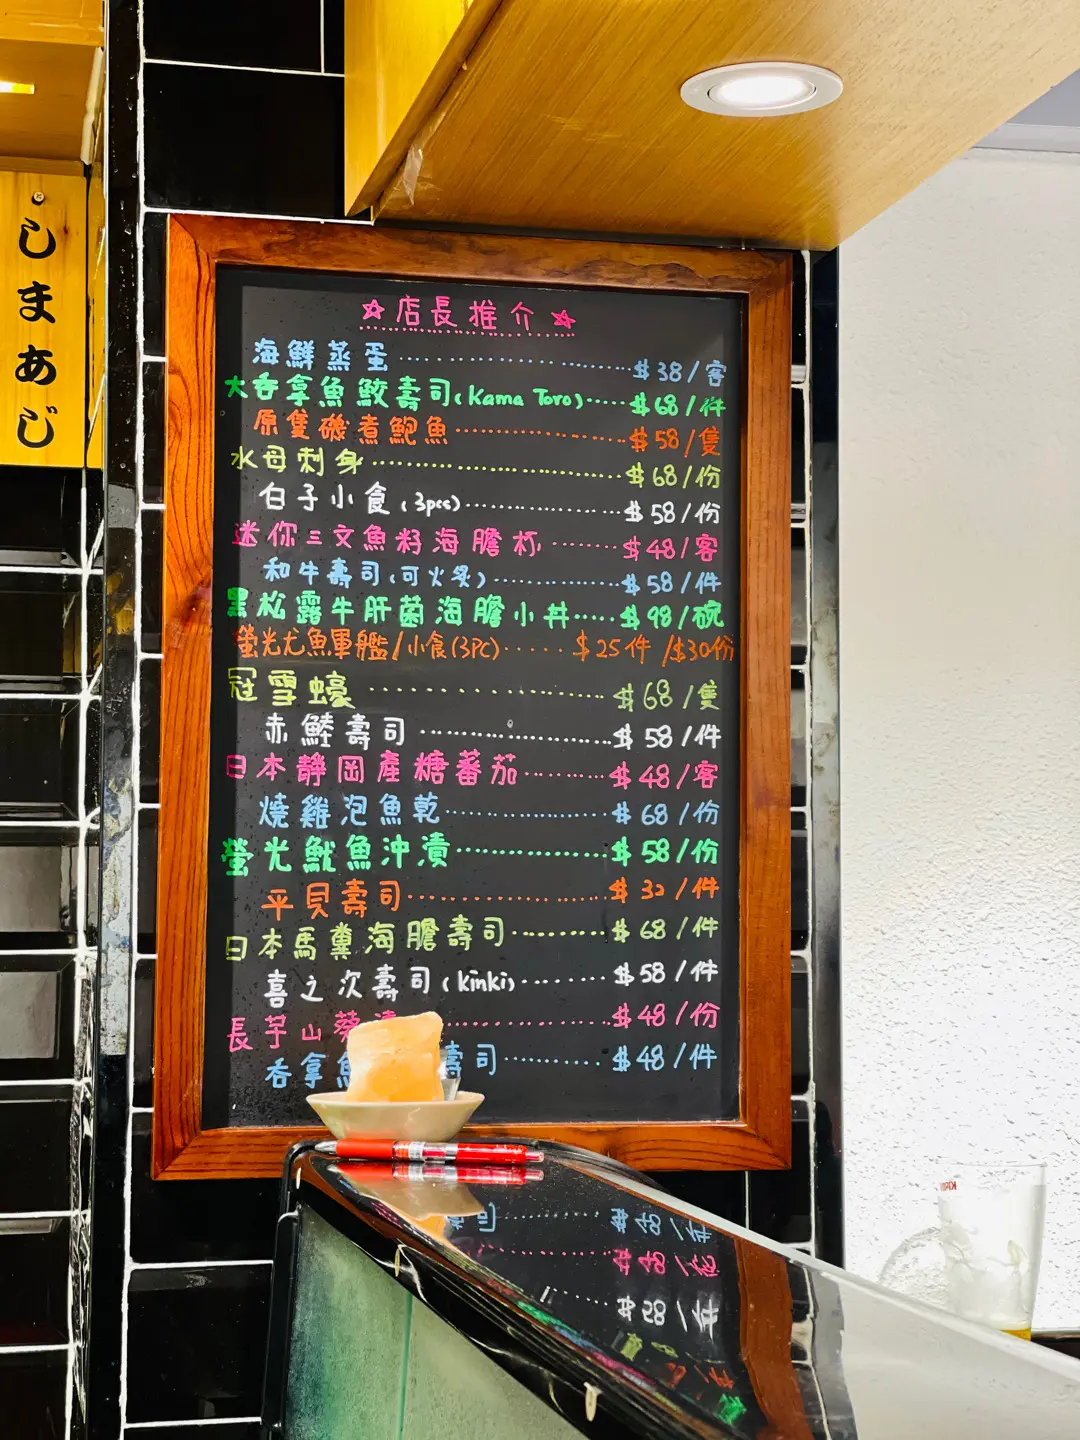 しまあじ
☆店長推介☆
海鮮蒸蛋..................$38/客
大吞拿魚鮫壽司(Kama Toro).....$68/件
原隻磯煮鮑魚..................$58/隻
水母刺身..................$68/份
白子小食(3pcs)..................$58/份
迷你三文魚籽海膽杯........$48/客
和牛壽司(可火炙)..................$58/件
黑松露牛肝菌海膽小丼.....$98/碗
螢光尤魚軍艦/小食(3PC)......$25件/$30份
冠雪蠔..................$68/隻
赤鯥壽司..................$58/件
日本靜岡產糖蕃茄..........$48/客
燒雞泡魚乾..................$68/份
螢光魷魚沖漬..................$58/份
平貝壽司..................$32/件
日本馬糞海膽壽司..........$68/件
喜之次壽司(kinki)........$58/件
長芋山葵漬..................$48/份
吞拿魚 壽司..........$48/件